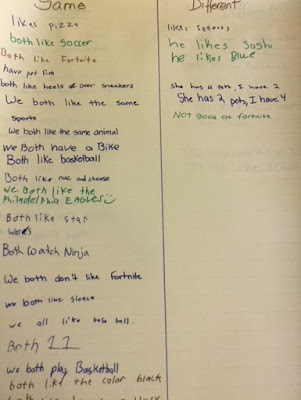 Same
likes pizza
both like soccer
Both like Fortnite
have pet fish
both like heels over sneakers
We both like the same
sports
We both like the same animal
We Both have a Bike
Both like basketball
Both like mac and cheese
We Both like the
Philadelphia EAGLES
Both like star
Wars
Both watch Ninja
We both don't like fortnite
we both like science
we all like base ball.
Both 11
We both play Basketball
both like the color black
Different
likes
he likes Sushi
he likes Blue
She has 11 pets, I have 2
She has 2 pets, I have 4
Not good at fortnite